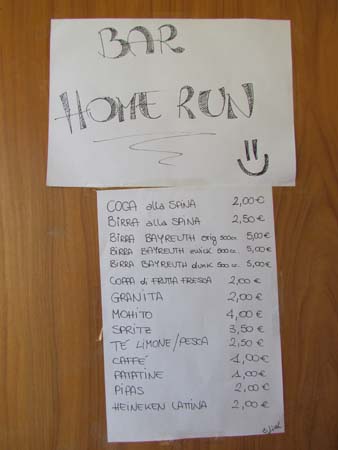 BAR
HOME RUN
COCA alla SPINA 2,00€
BIRRA alla SPINA 2,50€
BIRRA BAYREUTH orig 500cc 5,00€
BIRRA BAYREUTH 500cc 5,00€
BIRRA BAYREUTH dunk 500cc 5,00€
COPPA di FRUTTA FRESCA 2,00€
GRANITA 2,00€
MOHITO 4,00€
SPRITZ 3,50€
TÈ LIMONE/PESCA 2,50€
CAFFÉ 1,00€
PATATINE 1,00€
PIPAS 2,00€
HEINEKEN LATTINA 2,00€